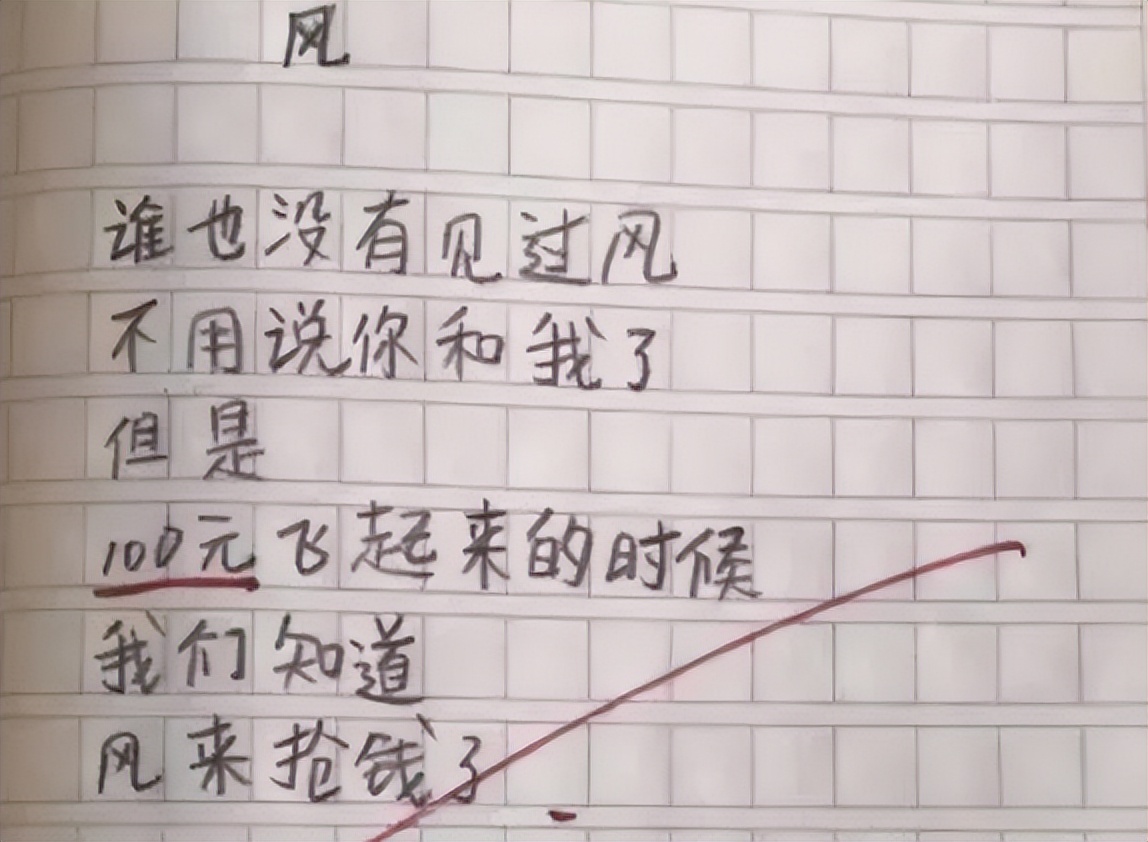 风
谁也没有见过风
不用说你和我了
但是
100元飞起来的时候
我们知道
风来抢钱了